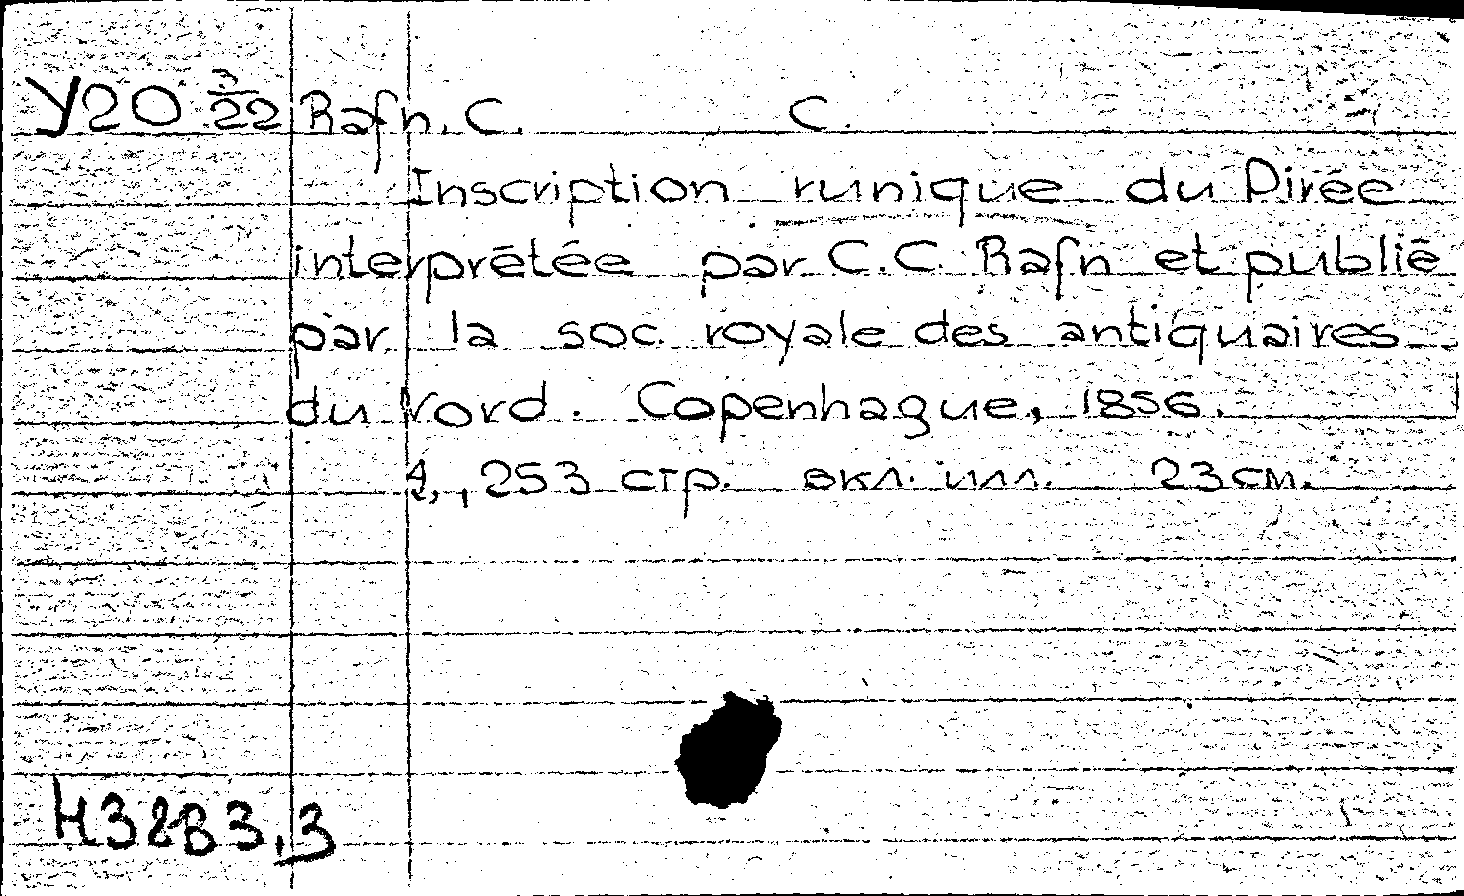 У20 3/22 Rafn, C. C.
Inscription runique du Pirée
interprétée par C.C. Rafn et publié
par la soc. royale des antiquaires
du Nord. Copenhague, 1856.
253 стр. вкл. илл. 23 см.
Н32В3,3